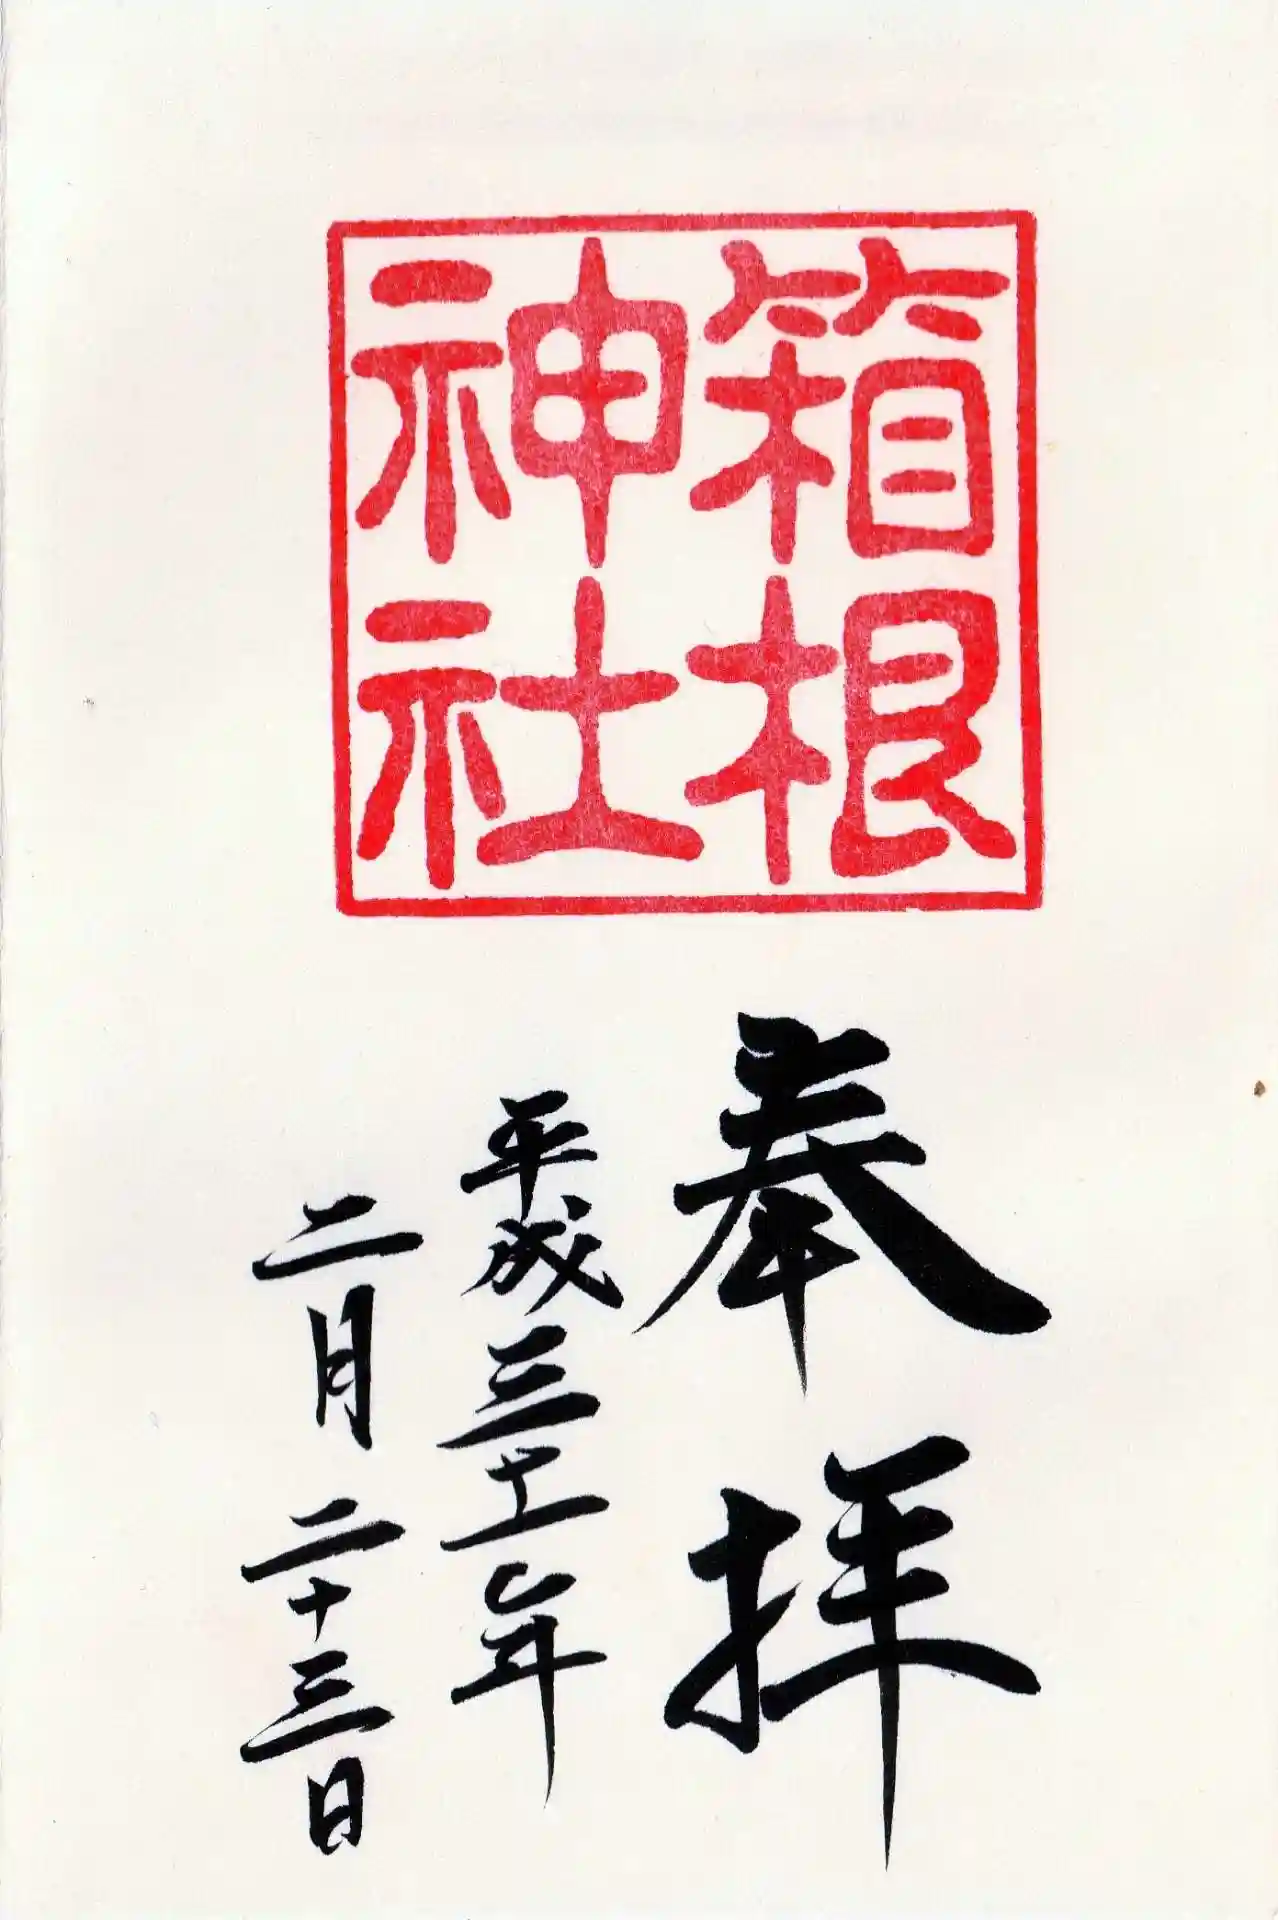 箱根
神社
奉拝
平成三十一年
二月二十三日